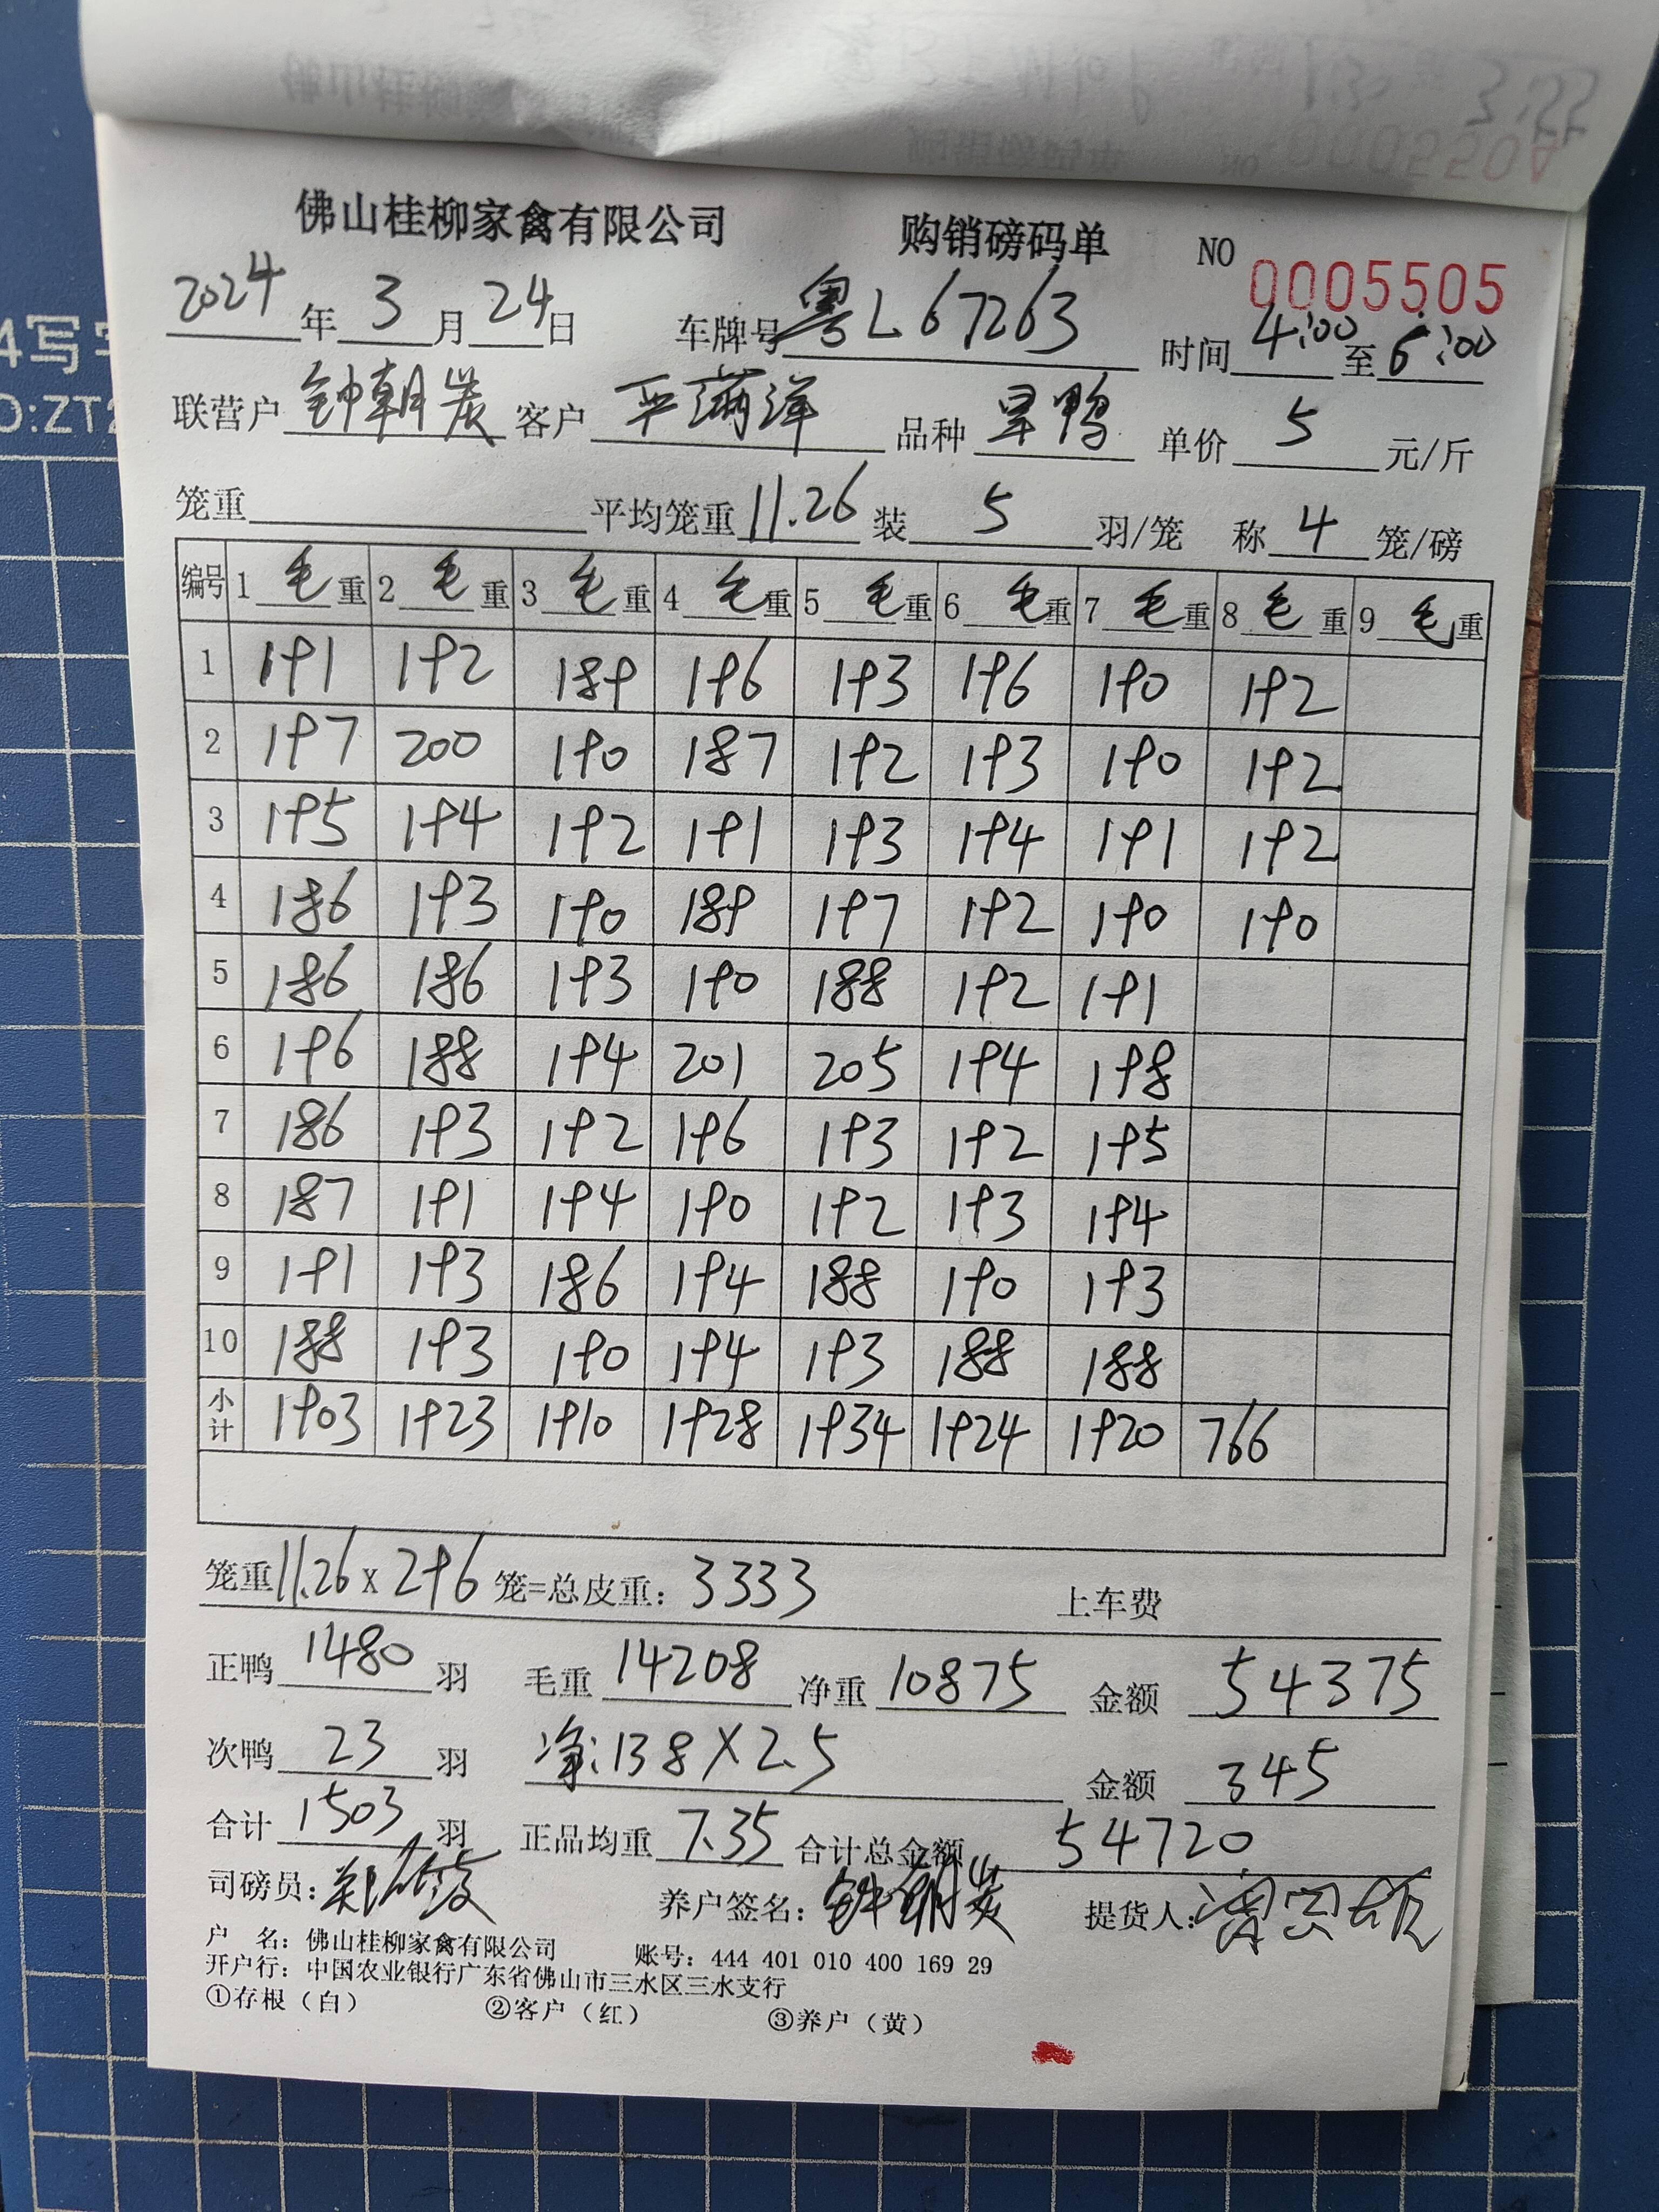 佛山桂柳家禽有限公司 购销磅码单 NO 0005505
2024年3月24日 车牌号粤L67263 时间4:00至6:00
联营户钟朝炭 客户平满洋 品种旱鸭 单价5元/斤
笼重 平均笼重11.26 装5羽/笼 称4笼/磅
编号 1毛重 2毛重 3毛重 4毛重 5毛重 6毛重 7毛重 8毛重 9毛重
1 191 192 189 196 193 196 190 192
2 197 200 190 187 192 193 190 192
3 195 194 192 191 193 194 191 192
4 186 193 190 189 197 192 190 190
5 186 186 193 190 188 192 191
6 196 188 194 201 205 194 198
7 186 193 192 196 193 192 195
8 187 191 194 190 192 193 194
9 191 193 186 194 188 190 193
10 188 193 190 194 193 188 188
小计 1903 1923 1910 1928 1934 1924 1920 766
笼重11.26x296笼=总皮重:3333 上车费
正鸭1480羽 毛重14208 净重10875 金额54375
次鸭23羽 净:138X2.5 金额345
合计1503羽 正品均重7.35 合计总金额54720
司磅员: 养户签名:钟朝炭 提货人:
户 名:佛山桂柳家禽有限公司 账号:444 401 010 400 169 29
开户行:中国农业银行广东省佛山市三水区三水支行
①存根(白) ②客户(红) ③养户(黄)